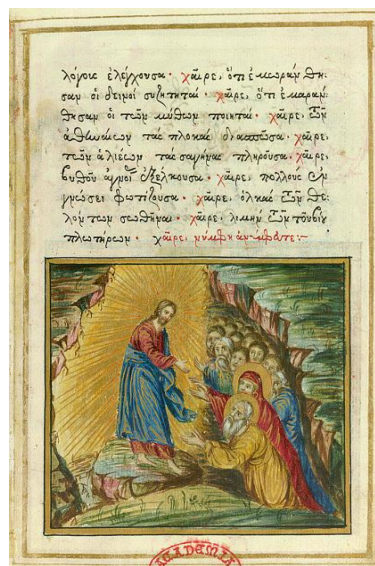 λόγους ἐλέγχουσα· χαῖρε, ὅτι ἐμωράνθη-
σαν οἱ δεινοὶ συζητηταί· χαῖρε, ὅτι ἐμαράν-
θησαν οἱ τῶν μύθων ποιηταί· χαῖρε, τῶν
ἀθηναίων τὰς πλοκὰς διασπῶσα· χαῖρε,
τῶν ἁλιέων τὰς σαγήνας πληροῦσα· χαῖρε,
βυθοῦ ἀγνοίας ἐξέλκουσα· χαῖρε, πολλοὺς ἐν
γνώσει φωτίζουσα· χαῖρε, ὁλκὰς τῶν θε-
λόντων σωθῆναι· χαῖρε, λιμὴν τῶν τοῦ βίου
πλωτήρων· χαῖρε, νύμφη ἀνύμφευτε:~
ACADEMIA